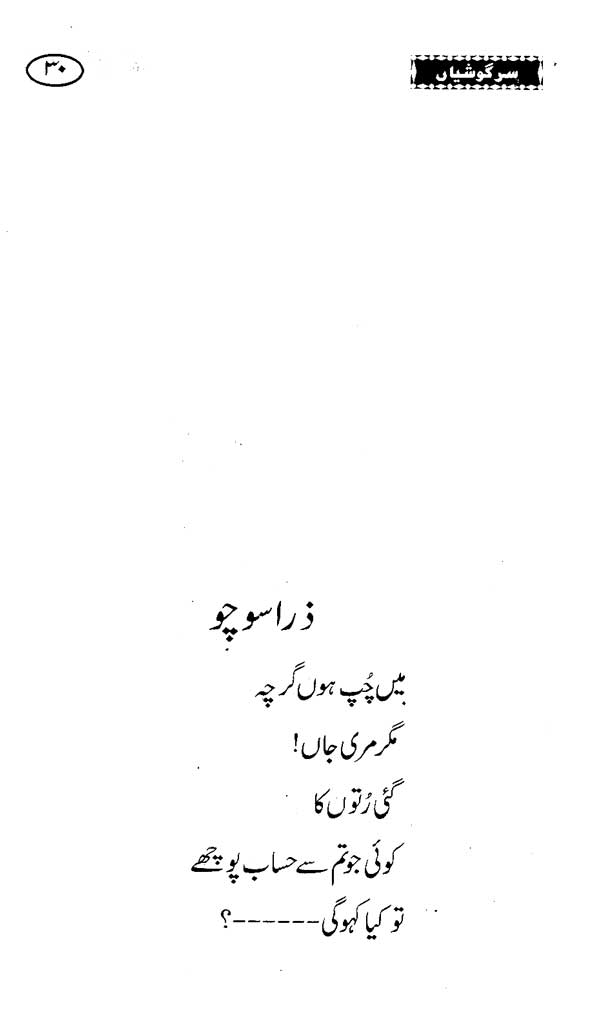 سرگوشیاں
۳۰
ذرا سوچو
میں چُپ ہوں گرچہ
مگر مری جاں!
گئی رُتوں کا
کوئی جو تم سے حساب پوچھے
تو کیا کہو گی ------؟